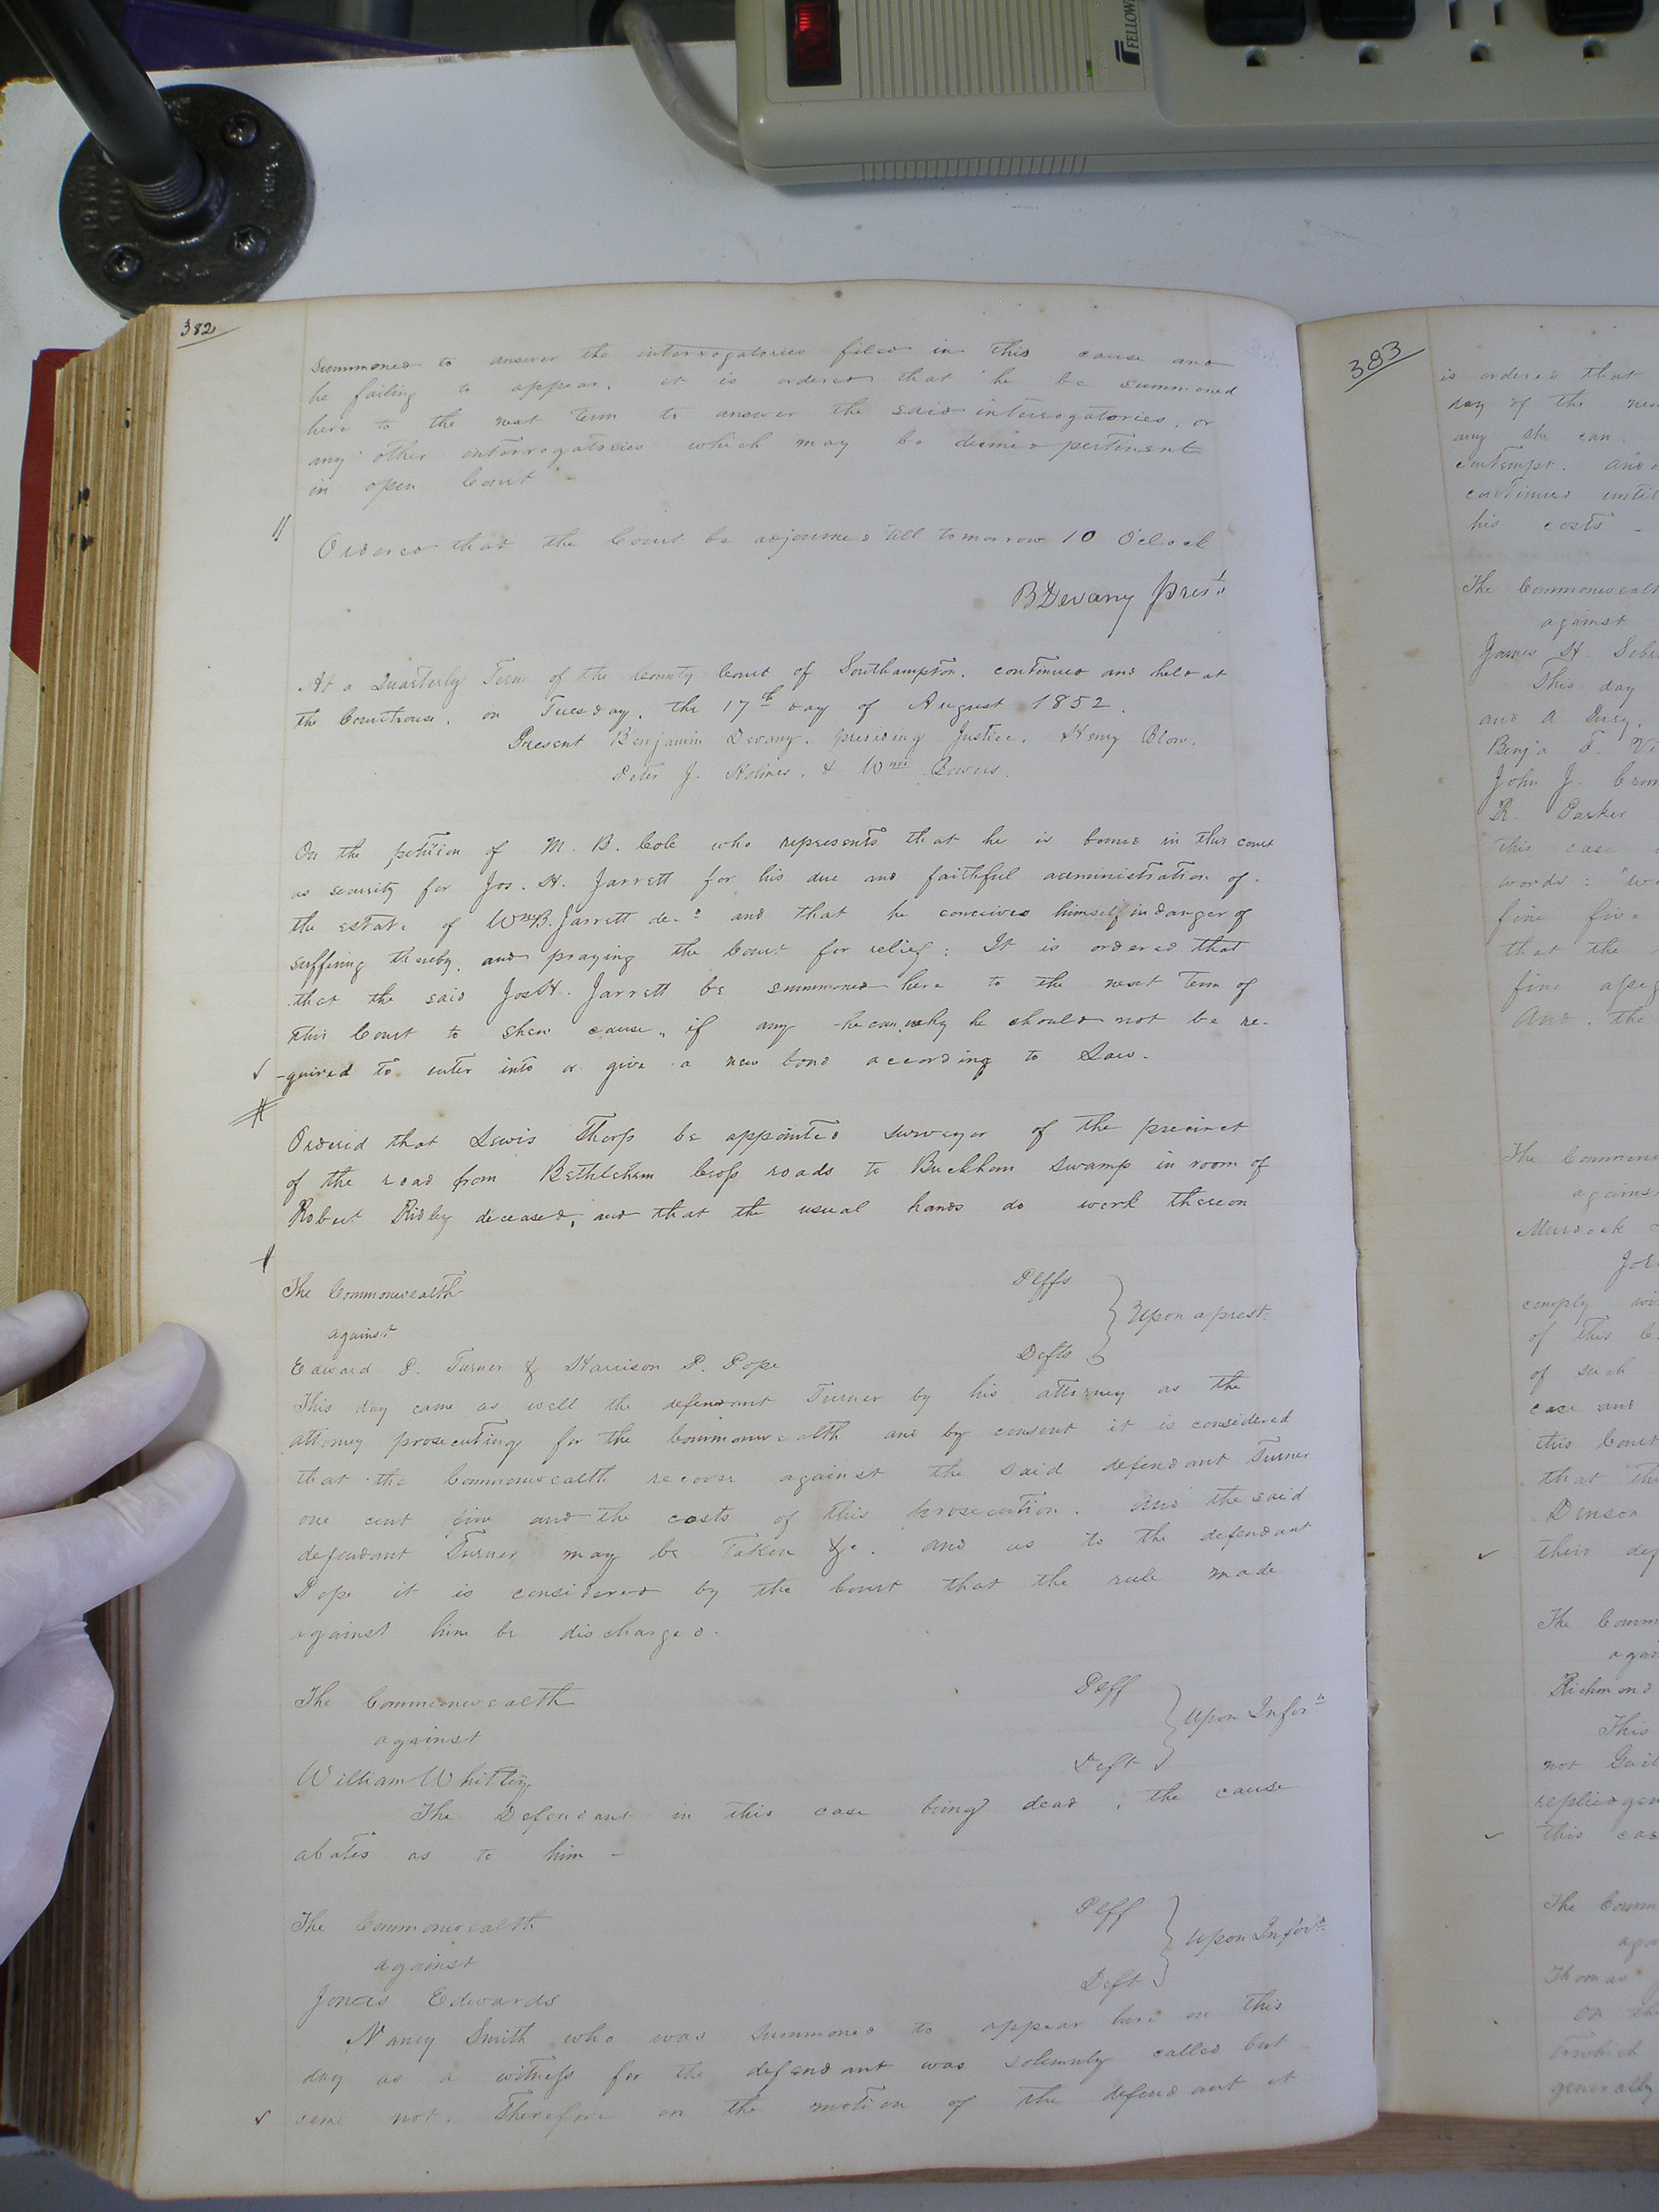 FELLOW
382
summoned to answer the interrogatories filed in this cause and
he failing to appear, it is ordered that he be summoned
here to the next Term to answer the said interrogatories, or
any other interrogatories which may be deemed pertinent
in open Court -
Ordered that the Court be adjourned till tomorrow 10 OClock
B Devany Prest.
At a Quarterly Term of the County Court of Southampton, continued and held at
the Courthouse, on Tuesday, the 17th day of August 1852.
Present Benjamin Devany, presiding Justice, Henry Blow,
Peter J. Holmes, & Wm
On the petition of M. B. Cole who represents that he is bound in this court
as security for Jos. H. Jarrett for his due and faithful administration of
the estate of Wm B. Jarrett decd and that he conceives himself in danger of
suffering thereby, and praying the Court for relief: It is ordered that
that the said Jos H. Jarrett be summoned here to the next Term of
this Court to shew cause, if any he can, why he should not be re-
-quired to enter into or give a new bond according to Law.
Ordered that Lewis Thorp be appointed surveyor of the precinct
of the road from Bethlehem Cross roads to Buckhorn Swamp in room of
Robert Ridley deceased, and that the usual hands do work thereon
The Commonwealth Plffs
against } Upon a prest.
Edward P. Turner & Harrison P. Pope Defts
This day came as well the defendant Turner by his attorney as the
attorney prosecuting for the Commonwealth and by consent it is considered
that the Commonwealth recover against the said defendant Turner
one cent fine and the costs of this prosecution. And the said
defendant Turner may be Taken &c. and as to the defendant
Pope it is considered by the Court that the rule made
against him be discharged.
The Commonwealth Plff
against } Upon Inforn
William Whitley Deft
The Defendant in this case being dead, the cause
abates as to him -
The Commonwealth Plff
against } Upon Inforn
Jonas Edwards Deft
Nancy Smith who was summoned to appear here on this
day as a witness for the defendant was solemnly called but
came not. Therefore on the motion of the defendant it
383
is ordered that
day of the nex
any she can
contempt. and
continued until
his costs -
The Commonwealt
against
James H.
This day
and a Jury,
Benja F.
John J.
R. Parker
this case
words: "we
fine five
that the
fine asse
And, the
The Common
against
Murdock
comply wi
of this C
of such
case and
this Court
that the
Denson
their def
The Comm
agai
Richmond
This
not Guil
replied gen
this cas
The Comm
aga
Thomas
on the
which
generally